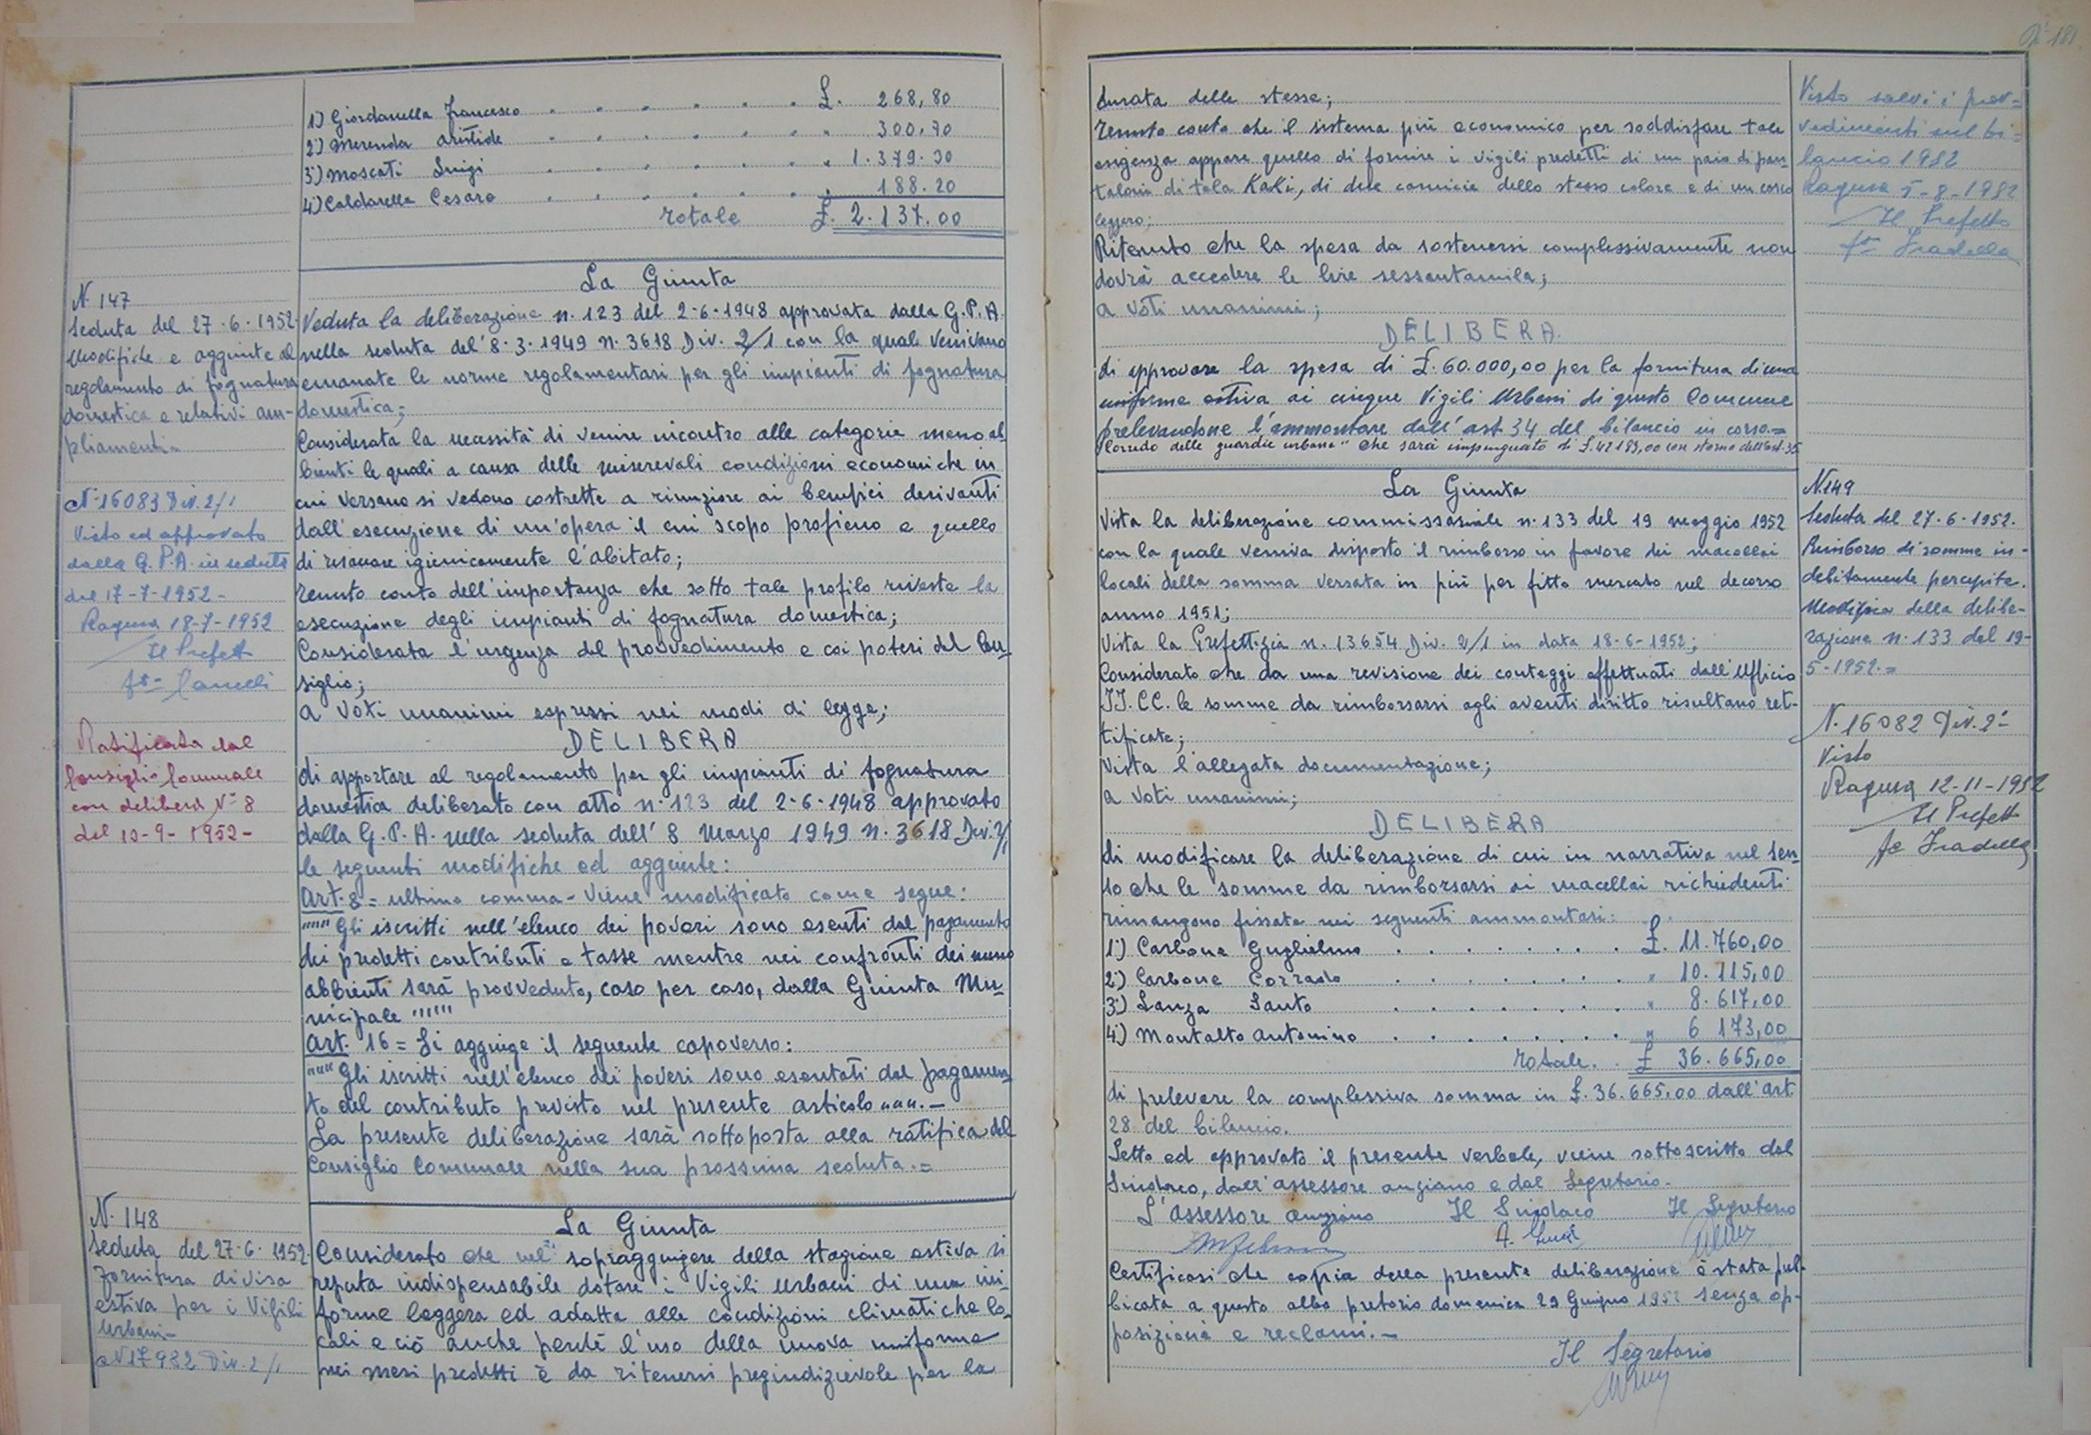 1) Giordanella Francesco . . . . . . £. 268,80
2) Merenda Aristide . . . . . . " 300,70
3) Moscati Luigi . . . . . . " 1.379.30
4) Caldarella Cesare . . . . . . " 188.20
Totale £. 2.137.00
N. 147
Seduta del 27.6.1952
Modifiche e aggiunte al
regolamento di fognatura
domestica e relativi am-
pliamenti=
N° 16083 Div. 2/1
Visto ed approvato
dalla G.P.A. in seduta
del 17-7-1952-
Ragusa 18-7-1952
Il Prefetto
Ratificata dal
Consiglio Comunale
con delibera N° 8
del 10-9-1952-
La Giunta
Veduta la deliberazione n. 123 del 2-6-1948 approvata dalla G.P.A.
nella seduta del' 8.3.1949 n. 3618 Div. 2/1 con la quale venivano
emanate le norme regolamentari per gli impianti di fognatura
domestica;
Considerata la necessità di venire incontro alle categorie meno ab
bienti le quali a causa delle miserevoli condizioni economiche in
cui versano si vedono costrette a rinunziare ai benefici derivanti
dall'esecuzione di un'opera il cui scopo proficuo e quello
di risanare igienicamente l'abitato;
Tenuto conto dell'importanza che sotto tale profilo riveste la
esecuzione degli impianti di fognatura domestica;
Considerata l'urgenza del provvedimento e coi poteri del Con-
siglio;
a voti unanimi espressi nei modi di legge;
DELIBERA
di apportare al regolamento per gli impianti di fognatura
domestica deliberato con atto n. 123 del 2-6-1948 approvato
dalla G.P.A. nella seduta dell' 8 Marzo 1949 n. 3618 Div. 2/1
le seguenti modifiche ed aggiunte:
Art. 8 = ultimo comma - Viene modificato come segue:
""" Gli iscritti nell'elenco dei poveri sono esenti dal pagamento
dei predetti contributi e tasse mentre nei confronti dei meno
abbienti sarà provveduto, caso per caso, dalla Giunta Mu-
nicipale """
Art. 16 = Si aggiunge il seguente capoverso:
""" Gli iscritti nell'elenco dei poveri sono esentati dal pagamen
to del contributo previsto nel presente articolo """.-
La presente deliberazione sarà sottoposta alla ratifica del
Consiglio Comunale nella sua prossima seduta.=
N. 148
Seduta del 27.6.1952.
Fornitura divisa
estiva per i Vigili
Urbani-
N 17982 Div. 2/1
La Giunta
Considerato che nel sopraggiungere della stagione estiva si
reputa indispensabile dotare i Vigili Urbani di una uni-
forme leggera ed adatta alle condizioni climatiche lo-
cali e ciò anche perché l'uso della nuova uniforme
nei mesi predetti è da ritenersi pregiudizievole per la
N° 181
durata delle stesse;
Tenuto conto che il sistema più economico per soddisfare tale
esigenza appare quello di fornire i vigili predetti di un paio di pan-
taloni di tela Kaki, di due camicie dello stesso colore e di un casco
leggero;
Ritenuto che la spesa da sostenersi complessivamente non
dovrà accedere le lire sessantamila;
a voti unanimi;
DELIBERA
di approvare la spesa di £. 60.000,00 per la fornitura di una
uniforme estiva ai cinque Vigili Urbani di questo Comune
prelevandone l'ammontare dall'art 34 del bilancio in corso.=
"Corredo delle guardie urbane" che sarà impinguato di £. 42183,00 con storno dall'art. 35
Visto salvi i prov=
vedimenti sul bi=
lancio 1952
Ragusa 5-8-1952
Il Prefetto
La Giunta
Vista la deliberazione commissariale n. 133 del 19 maggio 1952
con la quale veniva disposto il rimborso in favore dei macellai
locali della somma versata in più per fitto mercato nel decorso
anno 1951;
Vista la Prefettizia n. 13654 Div. 2/1 in data 18-6-1952;
Considerato che da una revisione dei conteggi effettuati dall'Ufficio
II. CC. le somme da rimborsarsi agli aventi diritto risultano ret-
tificate;
Vista l'allegata documentazione;
a voti unanimi;
DELIBERA
di modificare la deliberazione di cui in narrativa nel sen-
so che le somme da rimborsarsi ai macellai richiedenti
rimangono fissate nei seguenti ammontari:
1°) Carbone Guglielmo . . . . . . £. 11.760,00
2°) Carbone Corrado . . . . . . " 10.115,00
3°) Lanza Santo . . . . . . " 8.617,00
4°) Montalto Antonino . . . . . . " 6 173,00
Totale. . £ 36.665,00
di prelevare la complessiva somma in £. 36.665,00 dall'art.
28 del bilancio.
Letto ed approvato il presente verbale, viene sottoscritto dal
Sindaco, dall'assessore anziano e dal Segretario.
L'Assessore anziano Il Sindaco Il Segretario
Certificasi che copia della presente deliberazione è stata pub-
blicata a questo albo pretorio domenica 29 Giugno 1952 senza op-
posizioni e reclami.-
Il Segretario
N. 149
Seduta del 27-6-1952.
Rimborso di somme in-
debitamente percepite.
Modifica della delibe-
razione n. 133 del 19-
5-1952.=
N. 16082 Div. 2°
Visto
Ragusa 12-11-1952
Il Prefetto